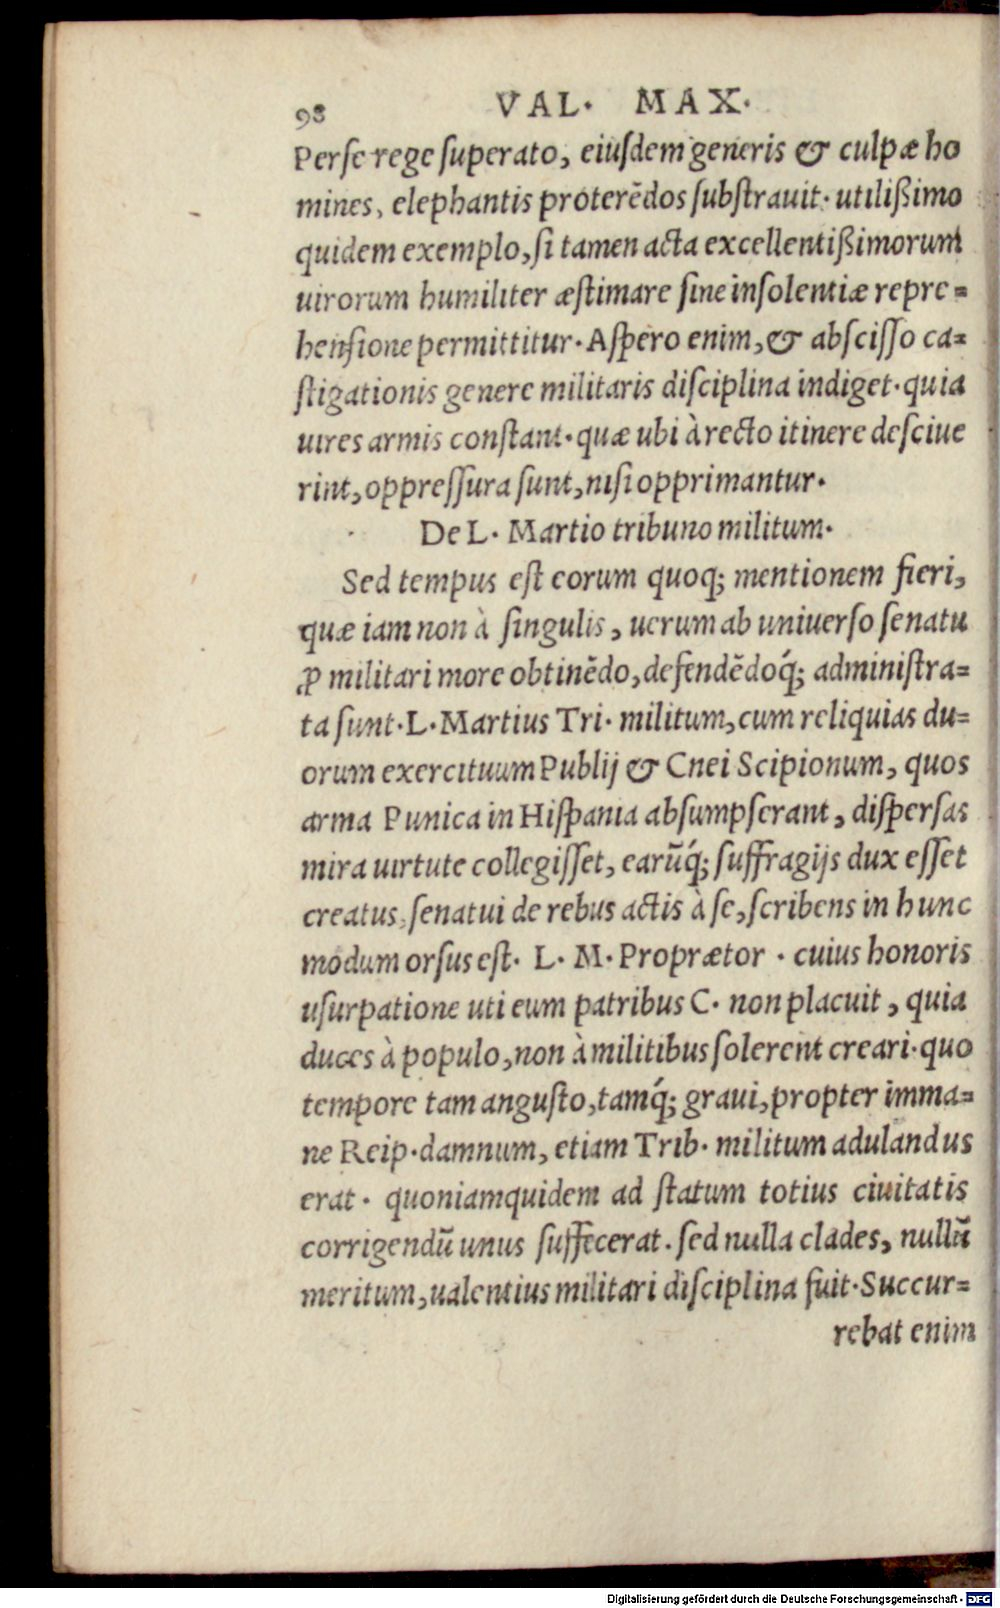 98 VAL. MAX.
Perse rege superato, eiusdem generis & culpæ ho
mines, elephantis proterēdos substrauit. utilißimo
quidem exemplo, si tamen acta excellentißimorum
uirorum humiliter æstimare sine insolentiæ repre=
hensione permittitur. Aspero enim, & abscisso ca=
stigationis genere militaris disciplina indiget. quia
uires armis constant. quæ ubi à recto itinere desciue
rint, oppressura sunt, nisi opprimantur.
De L. Martio tribuno militum.
Sed tempus est eorum quoq; mentionem fieri,
quæ iam non à singulis, uerum ab uniuerso senatu
ꝓ militari more obtinēdo, defendēdoq́; administra=
ta sunt. L. Martius Tri. militum, cum reliquias du=
orum exercituum Publij & Cnei Scipionum, quos
arma Punica in Hispania absumpserant, dispersas
mira uirtute collegisset, earūq́; suffragijs dux esset
creatus, senatui de rebus actis à se, scribens in hunc
modum orsus est. L. M. Proprætor . cuius honoris
usurpatione uti eum patribus C. non placuit, quia
duces à populo, non à militibus solerent creari. quo
tempore tam angusto, tamq́; graui, propter imma=
ne Reip. damnum, etiam Trib. militum adulandus
erat. quoniamquidem ad statum totius ciuitatis
corrigendū unus suffecerat. sed nulla clades, nullū
meritum, ualentius militari disciplina fuit. Succur=
rebat enim
Digitalisierung gefördert durch die Deutsche Forschungsgemeinschaft - DFG